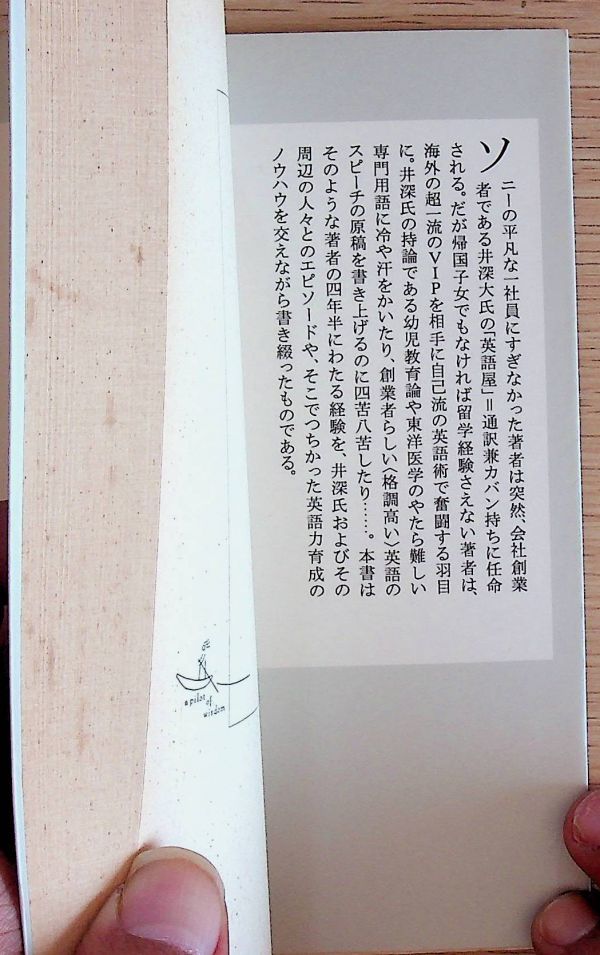 ソニーの平凡な一社員にすぎなかった著者は突然、会社創業
者である井深大氏の「英語屋」＝通訳兼カバン持ちに任命
される。だが帰国子女でもなければ留学経験さえない著者は、
海外の超一流のＶＩＰを相手に自己流の英語術で奮闘する羽目
に。井深氏の持論である幼児教育論や東洋医学のやたら難しい
専門用語に冷や汗をかいたり、創業者らしい〈格調高い〉英語の
スピーチの原稿を書き上げるのに四苦八苦したり……。本書は
そのような著者の四年半にわたる経験を、井深氏およびその
周辺の人々とのエピソードや、そこでつちかった英語力育成の
ノウハウを交えながら書き綴ったものである。
a pilot of
wisdom